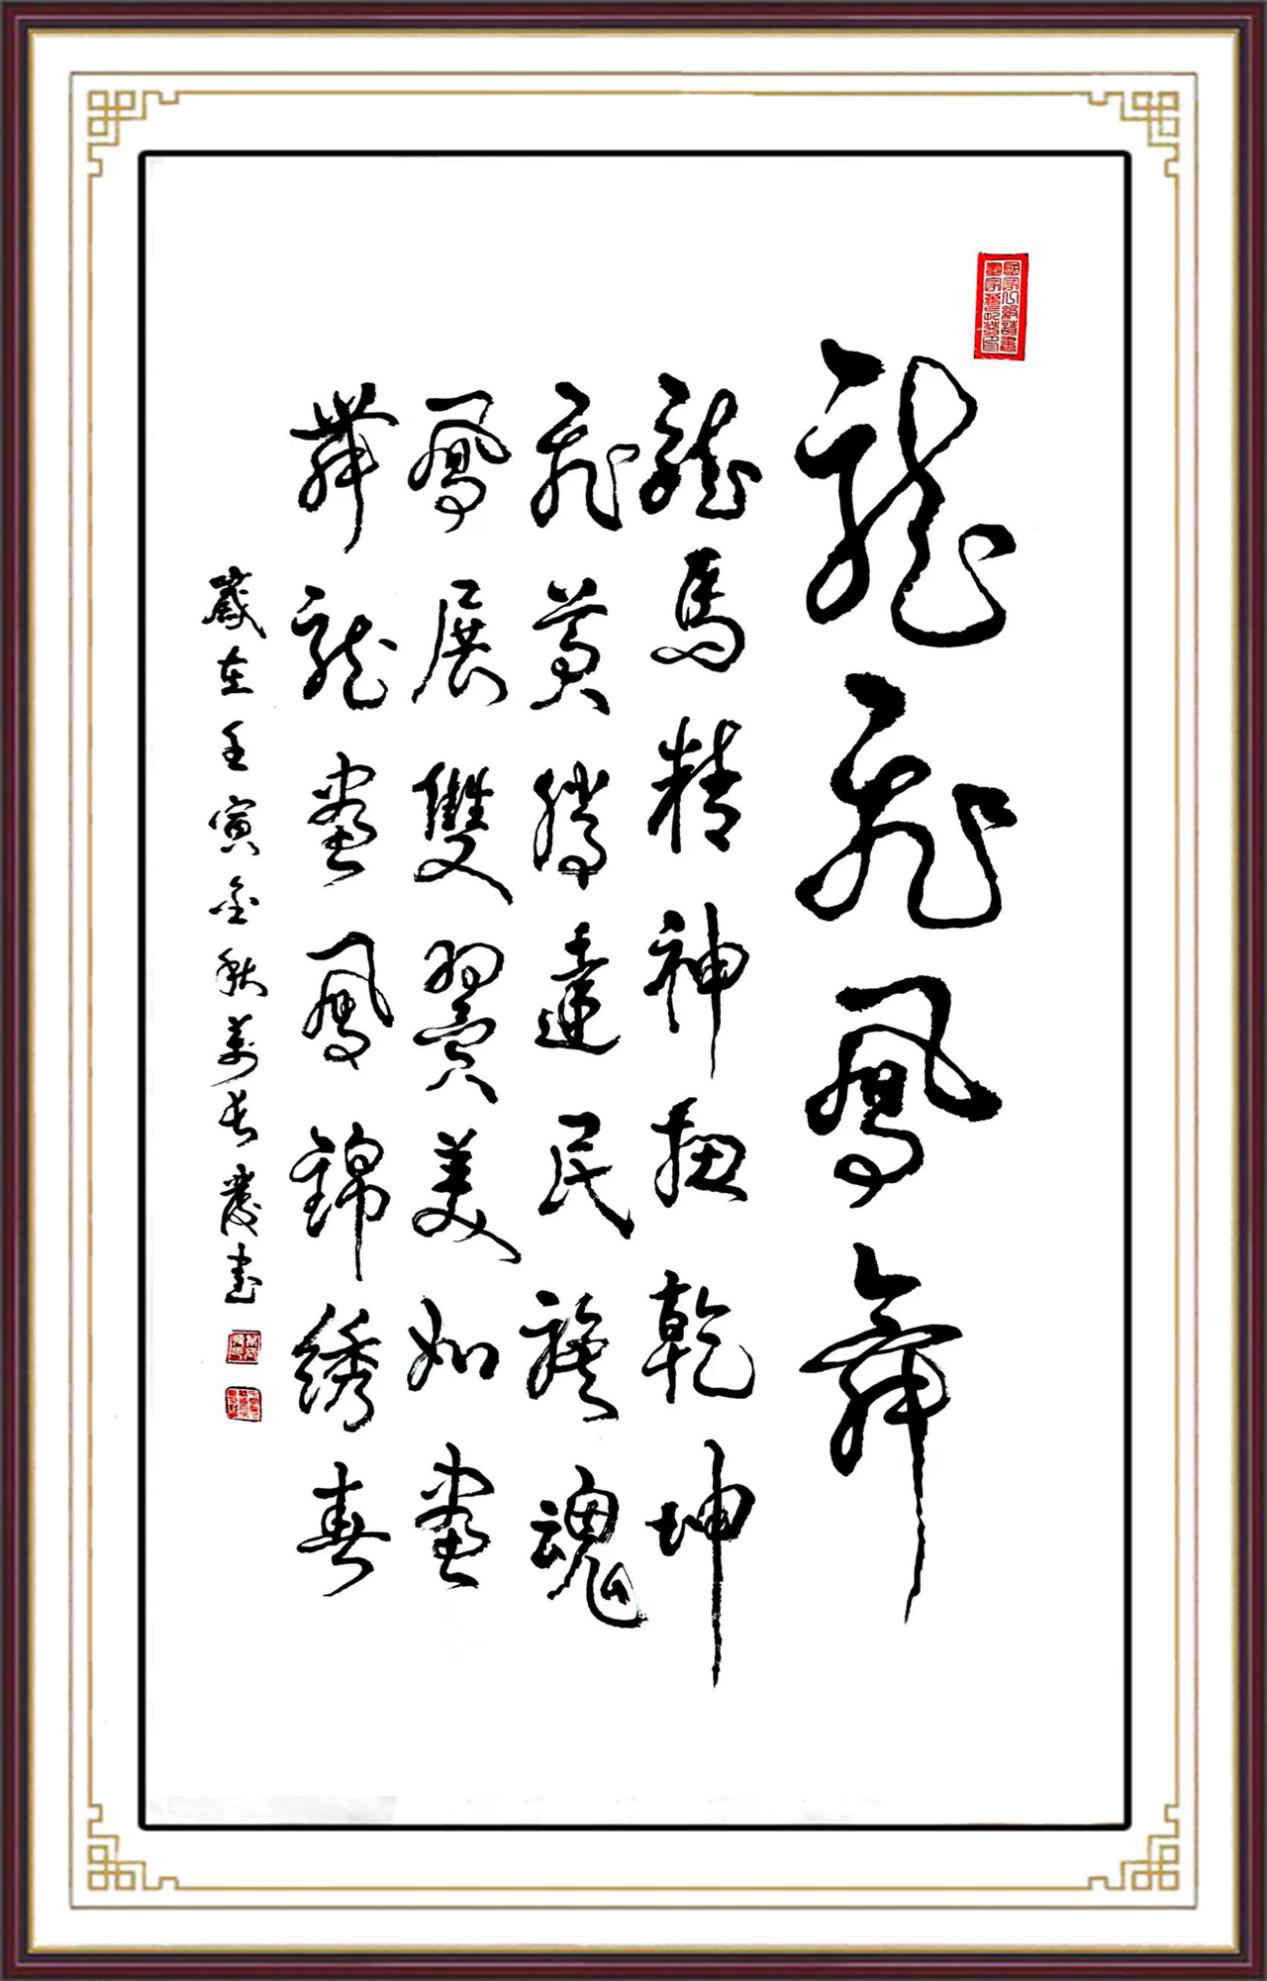 龍飛鳳舞
龍馬精神扭乾坤
飛黃騰達民族魂
鳳展雙翼美如畫
舞龍畫鳳錦绣春
歲在壬寅金秋萬長慶書